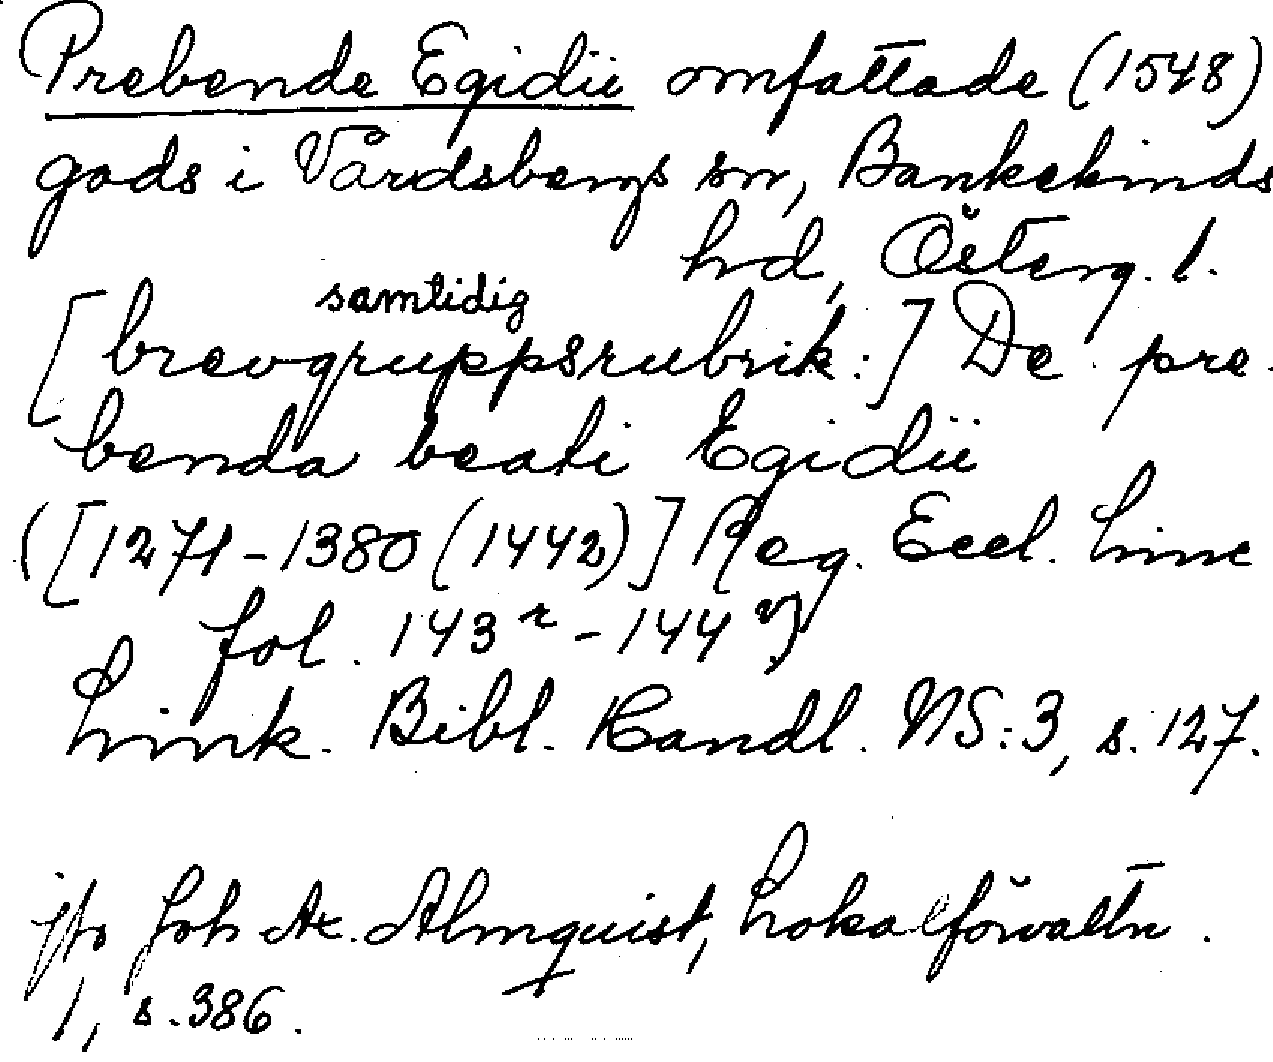 Prebende Egidii omfattade (1548)
gods i Vårdsbergs sn, Bankekinds
hd, Österg. l.
samtidig
[brevgruppsrubrik:] De pre
benda beati Egidii
([1271-1380 (1442)] Reg. Eccl. Linc
fol. 143 r - 144 v)
Link. Bibl. Handl. NS:3, s. 127.
jfr Joh Ax. Almquist, Lokalförvaltn.
1, s. 386.